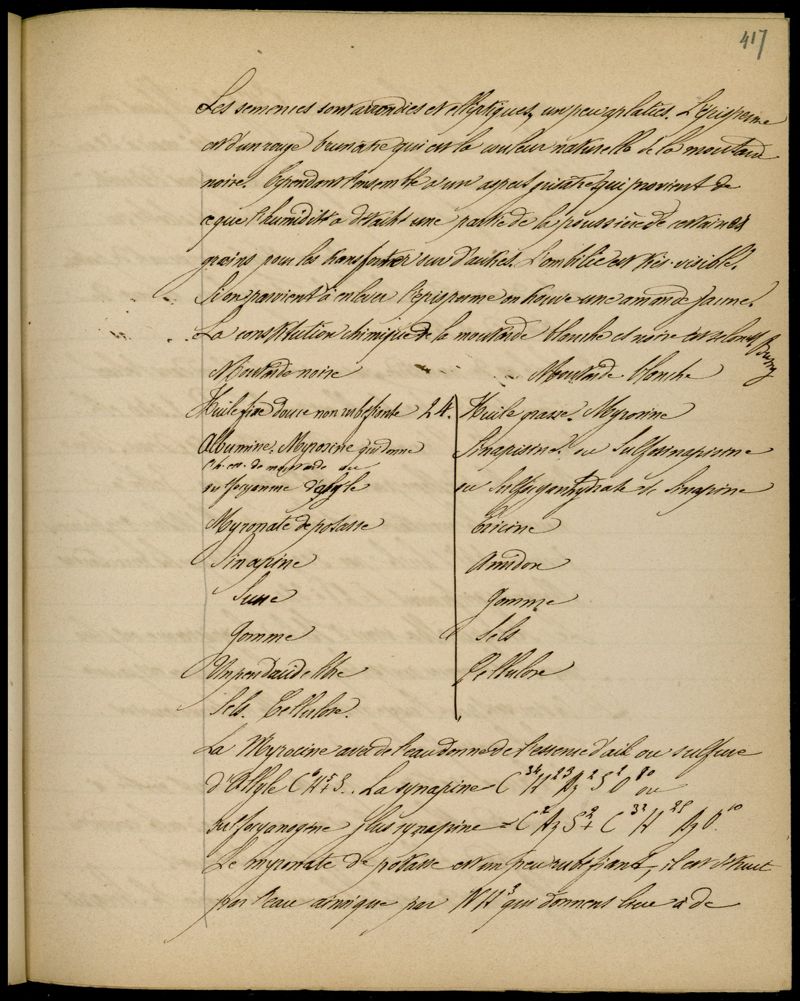 417
Les semences sont arrondies et elliptiques, un peu aplaties. L'épisperme
est d'un rouge brunatre qui est la couleur naturelle de la moutarde
noire. Cependant l'ensemble a un aspect grisatre qui provient de
ce que l'humidité a détaché une partie de la poussière de certaines
grains pour les transporter sur d'autres. L'ombilic est très-visible.
Si on parvient à enlever l'episperme on trouve une amande jaune.
La constitution chimique de la moutarde blanche et noire est selon Bussy
Moutarde noire Moutarde blanche
Huile fixe douce non rubéfiante 24. Huile grasse. Myrosine
Albumine. Myrosine qui donne Sinapisine ou sulfosinapisine
ess. de moutarde ou
sulfocyanure d'allyle ou sulfocyanhydrate de Sinapine
Myronate de potasse Erucine
Sinapine Amidon
Sucre Gomme
Gomme Sels
Un peu d'acide libre Cellulose
Sels. Cellulose.
La Myrosine avec de l'eau donne de l'essence d'ail ou sulfure
d'Allyle C⁶H⁵S. La synapine = C³⁴H²³Az²S²O¹⁰ ou
sulfocyanogène plus synapine = C²AzS² + C³²H²⁵AzO¹⁰
Le myronate de potasse est un peu rubéfiant, il est détruit
par l'eau ainsi que par NH³ qui donnent lieu à de